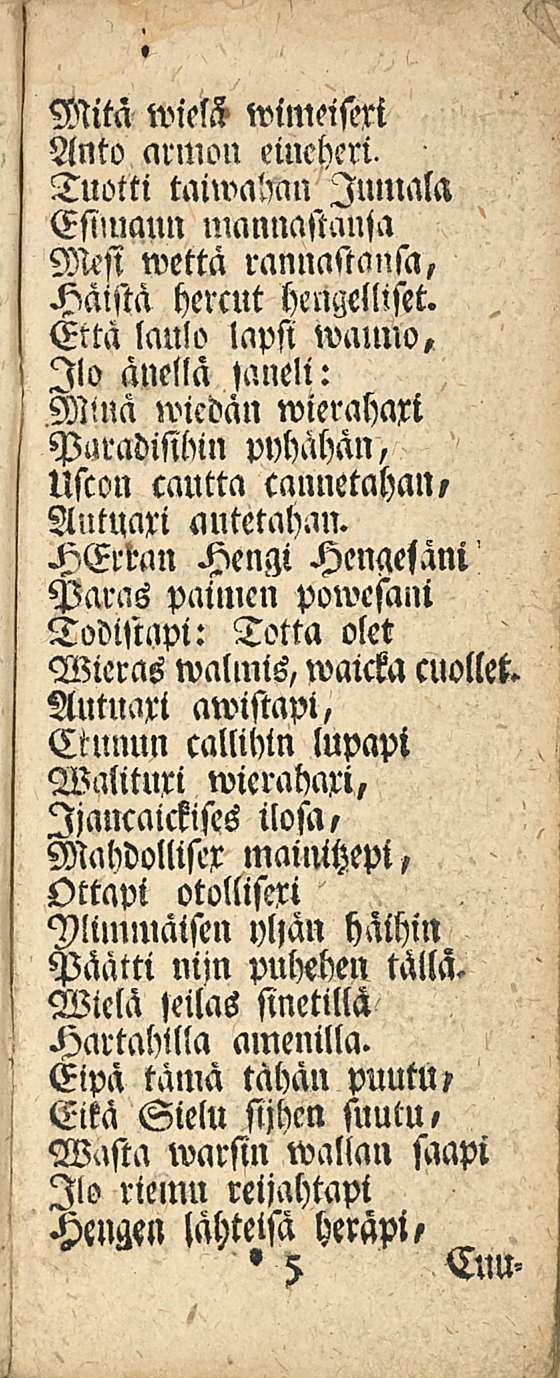 Mitä wielä wimeisexi
Anto armon eineheri.
Tuotti taiwahan Jumala
Esimaun mannastansa
Mesi wettä rannastansa,
Häistä hercut hengelliset.
Että laulo lapsi wauno,
Ilo änellä janeli:
Minä wiedän wierahaxi
Paradisihin pyhähän,
Uscon cautta cannetahan,
Autuaxi autetahan.
HErran Hengi Hengesäni
Paras paimen powesani
Todistapi: Totta olet
Wieras walmis, waicka cuollet.
Autuaxi awistapi,
Cruunun callihin lupapi
Walituxi wierahaxi,
Ijancaickises ilosa,
Mahdollisex mainitzepi,
Ottapi otollisexi
Ylimmäisen yljän häihin
Päätti nijn puhehen tällä.
Wielä seilas sinetillä
Hartahilla amenilla.
Eipä tämä tähän puutu,
Eikä Sielu sijhen suutu,
Wasta warsin wallan saapi
Ilo riemu reijahtapi
Hengen lähteisä heräpi,
* 5 Cuu-